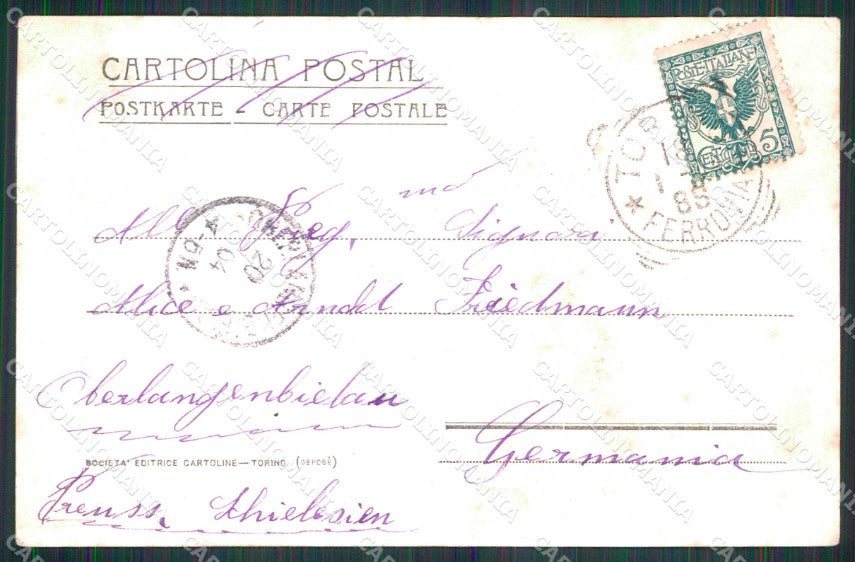 CARTOLINA POSTAL
POSTKARTE - CARTE POSTALE
POSTE ITALIANE
CENTESIMI 5
TO
FERROVIA
mo
All Preg. Signori
Alice e Arndt Friedmann
Oberlangenbielau
Germania
SOCIETA' EDITRICE CARTOLINE — TORINO (DEPOSÉ)
Preuss. Schlesien
CARTOLINOMANIA